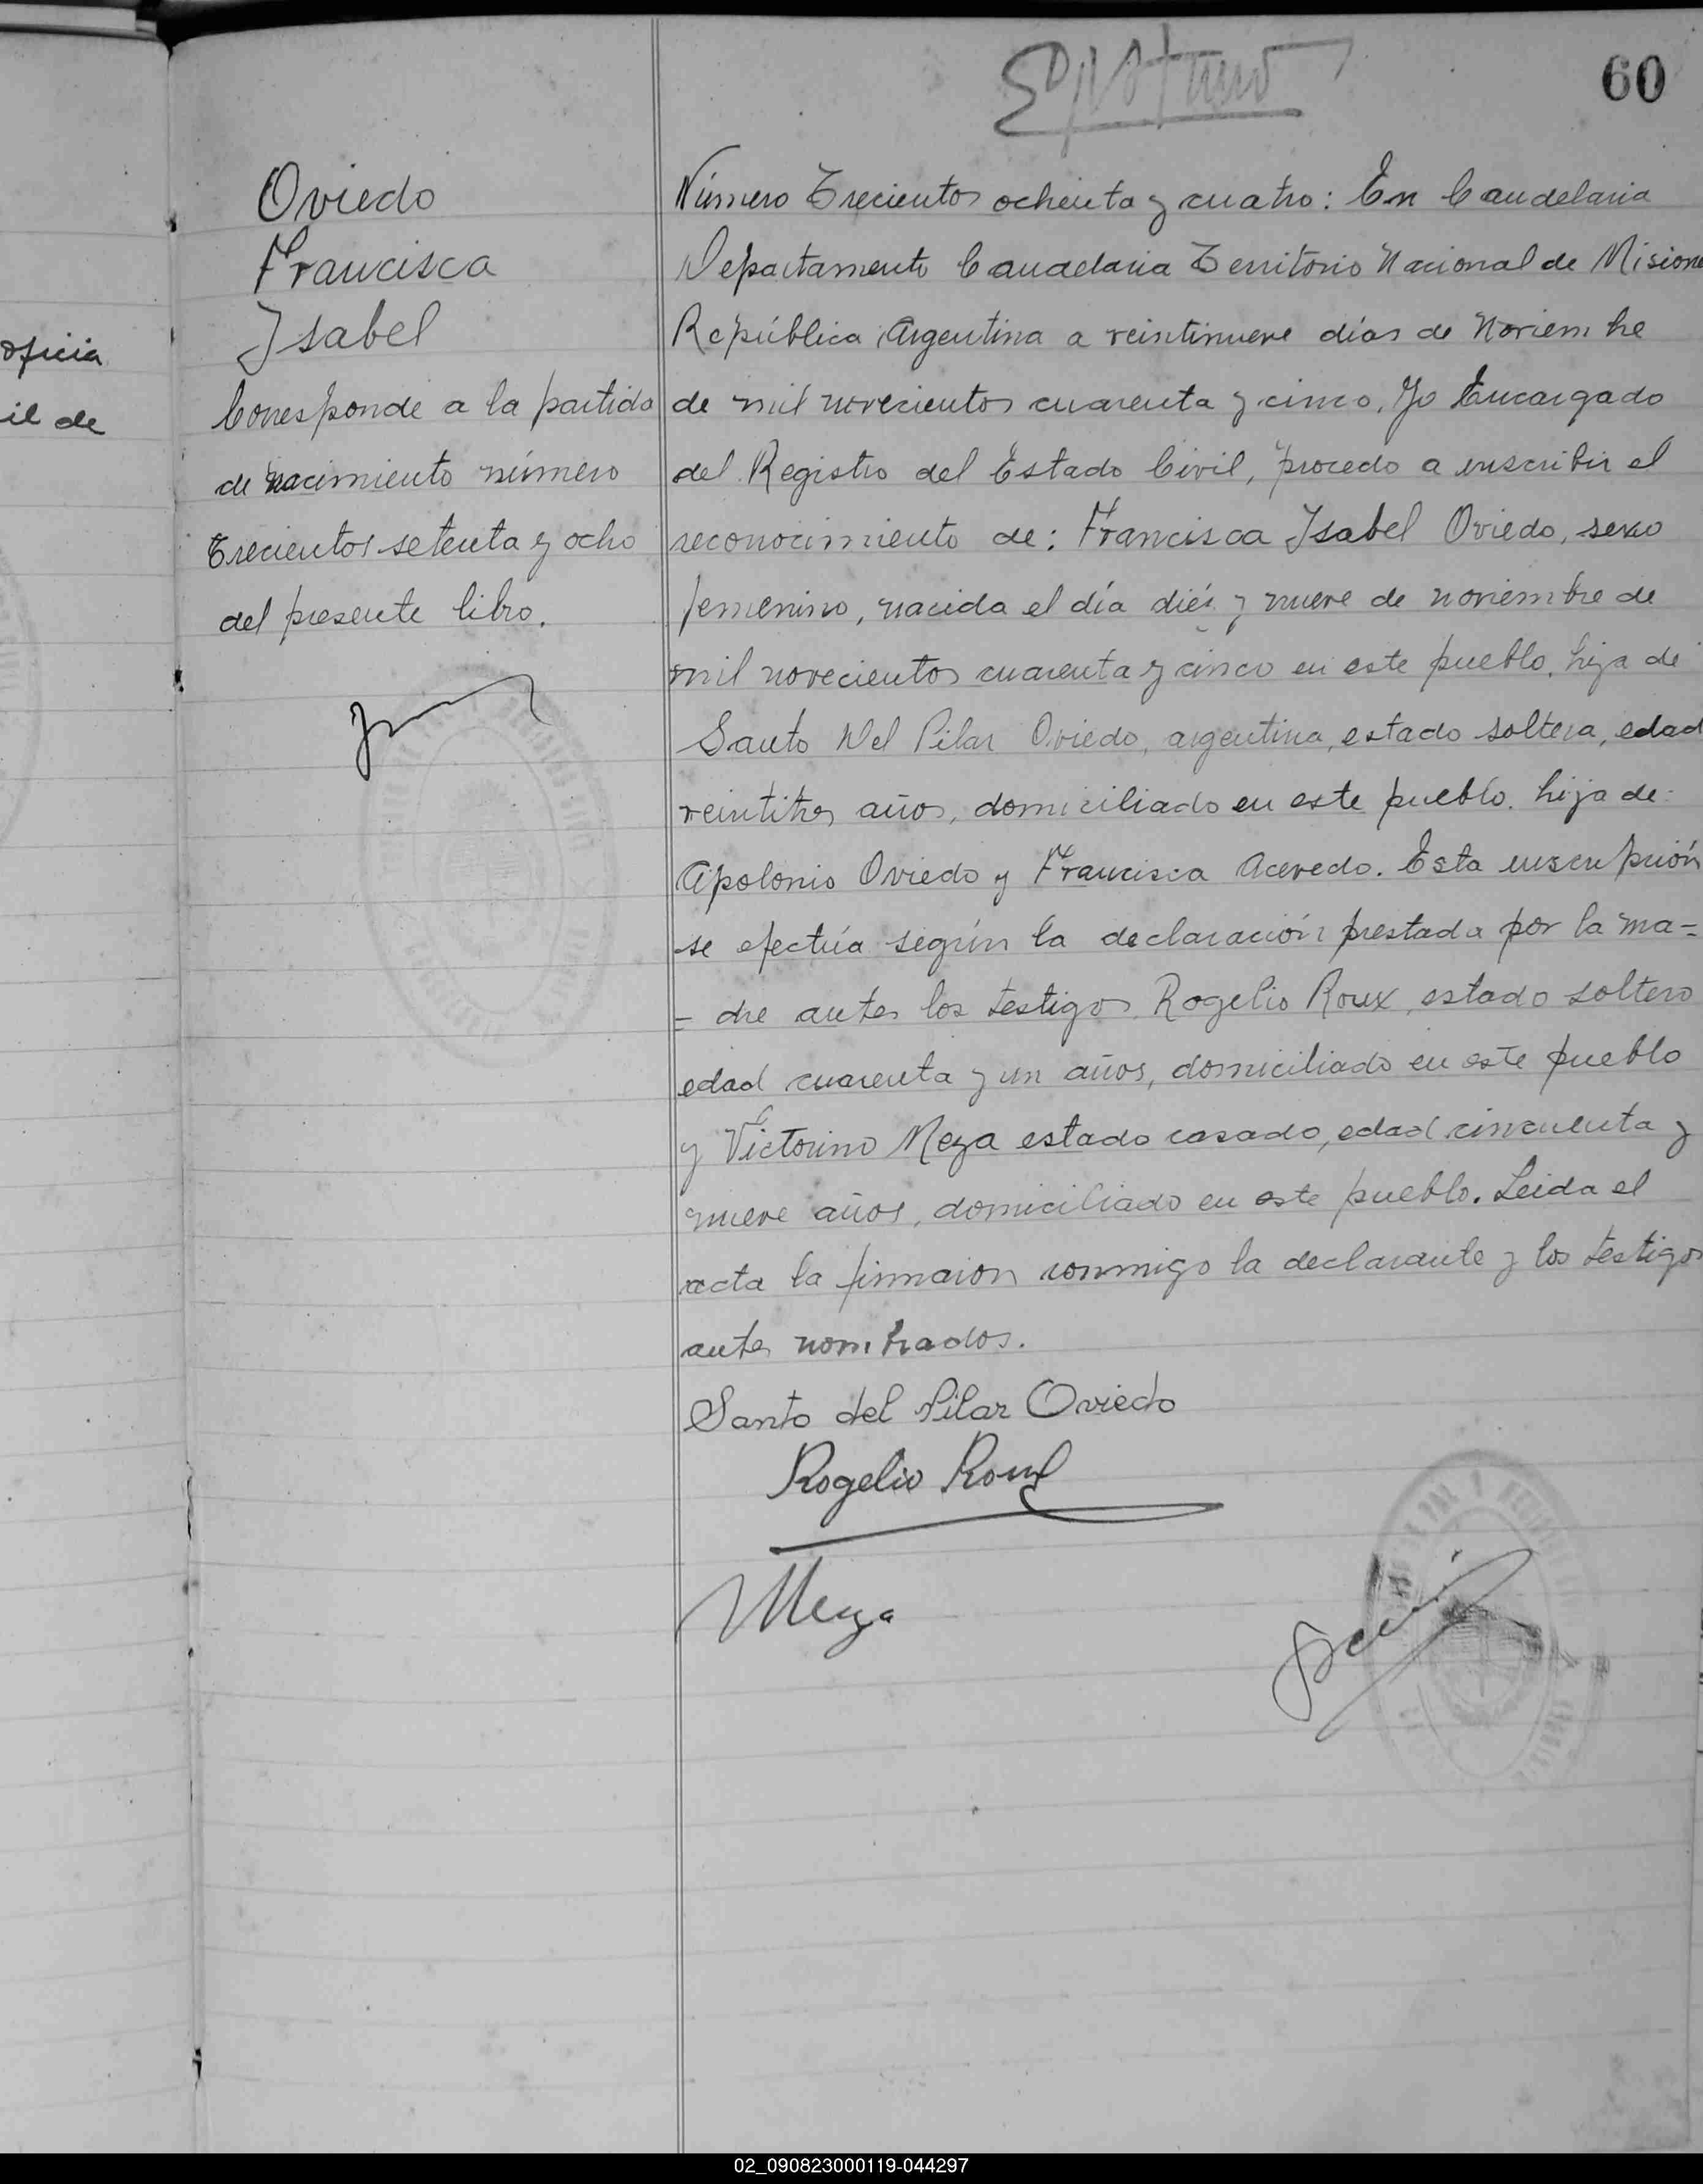 60
oficia
il de
Oviedo
Francisca
Isabel
Corresponde a la partida
de nacimiento número
Trecientos setenta y ocho
del presente libro.
Número Trecientos ochenta y cuatro: En Candelaria
Departamento Candelaria Territorio Nacional de Misione
República Argentina a veintinueve días de Noviembre
de mil novecientos cuarenta y cinco, Yo Encargado
del Registro del Estado Civil, procedo a inscribir el
reconocimiento de: Francisca Isabel Oviedo, sexo
femenino, nacida el día diés y nueve de noviembre de
mil novecientos cuarenta y cinco en este pueblo, hija de
Santo Del Pilar Oviedo, argentina, estado soltera, edad
veintitres años, domiciliado en este pueblo. hija de:
Apolonio Oviedo y Francisca Acevedo. Esta inscripción
se efectúa según la declaración prestada por la ma=
= dre antes los testigos Rogelio Roux, estado soltero
edad cuarenta y un años, domiciliado en este pueblo
y Victorino Meza estado casado, edad cincuenta y
nueve años, domiciliado en este pueblo. Leida el
acta la firmaron conmigo la declarante y los testigos
antes nombrados.
Santo del Pilar Oviedo
Rogelio Roux
VMeza
02_090823000119-044297